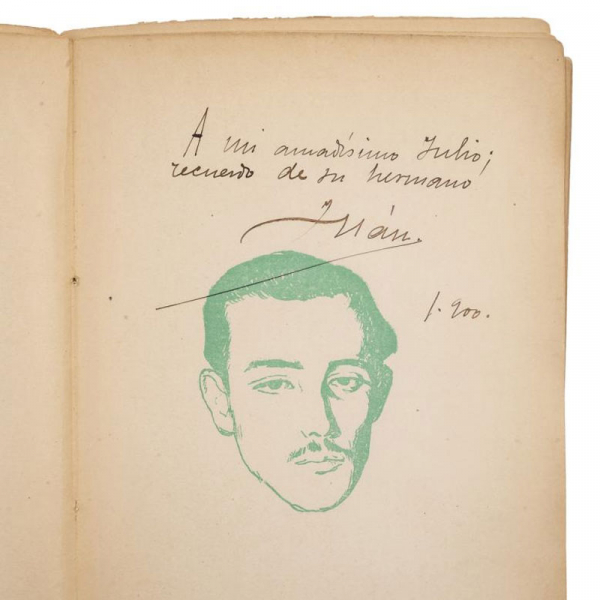 A mi amadísimo Julio;
recuerdo de su hermano
Juán.
1.900.